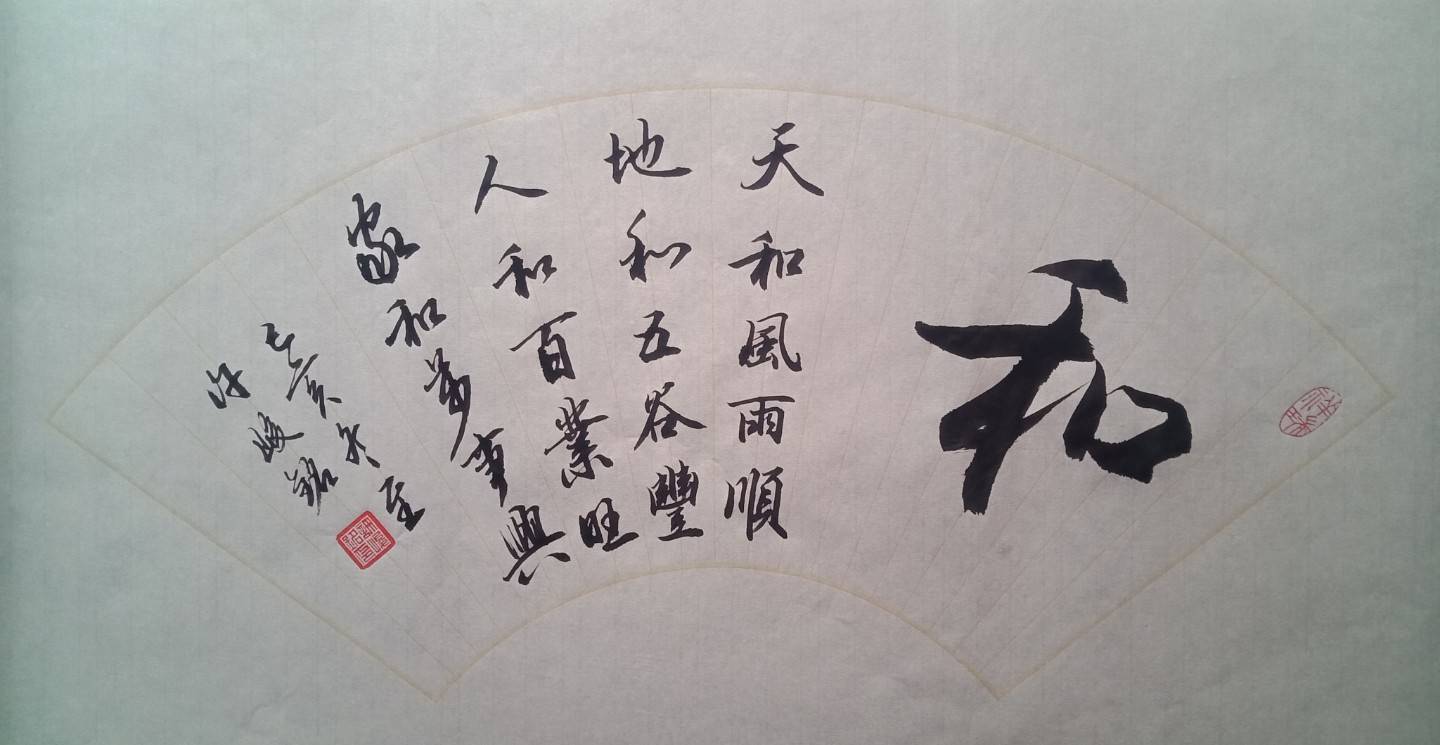 和
天和風雨順
地和五谷豐
人和百業旺
家和萬事興
己亥冬至
許峻銘